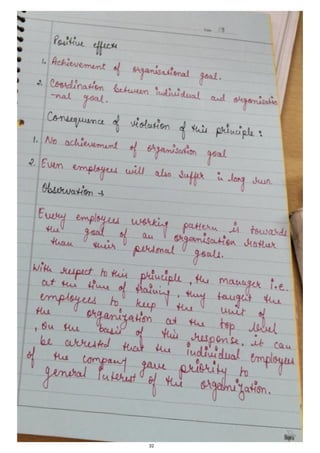 Positive effects
1. Achievement of organisational goal.
2. Coordination between individual and organisatio
-nal goal.
Consequence of violation of this principle :
1. No achievement of organisation goal
2. Even employees will also suffer in long run
Observation →
Every employees working pattern is towards
the goal of an organisation rather
than their personal goals.
With respect to this principle, the manager i.e.
at the time of training, they taught the
employees to keep the unit of
the organization at the top level
, on the basis of this response. it can
be arrested that the individual employees
of the company gave priority to
general interest of the organization.